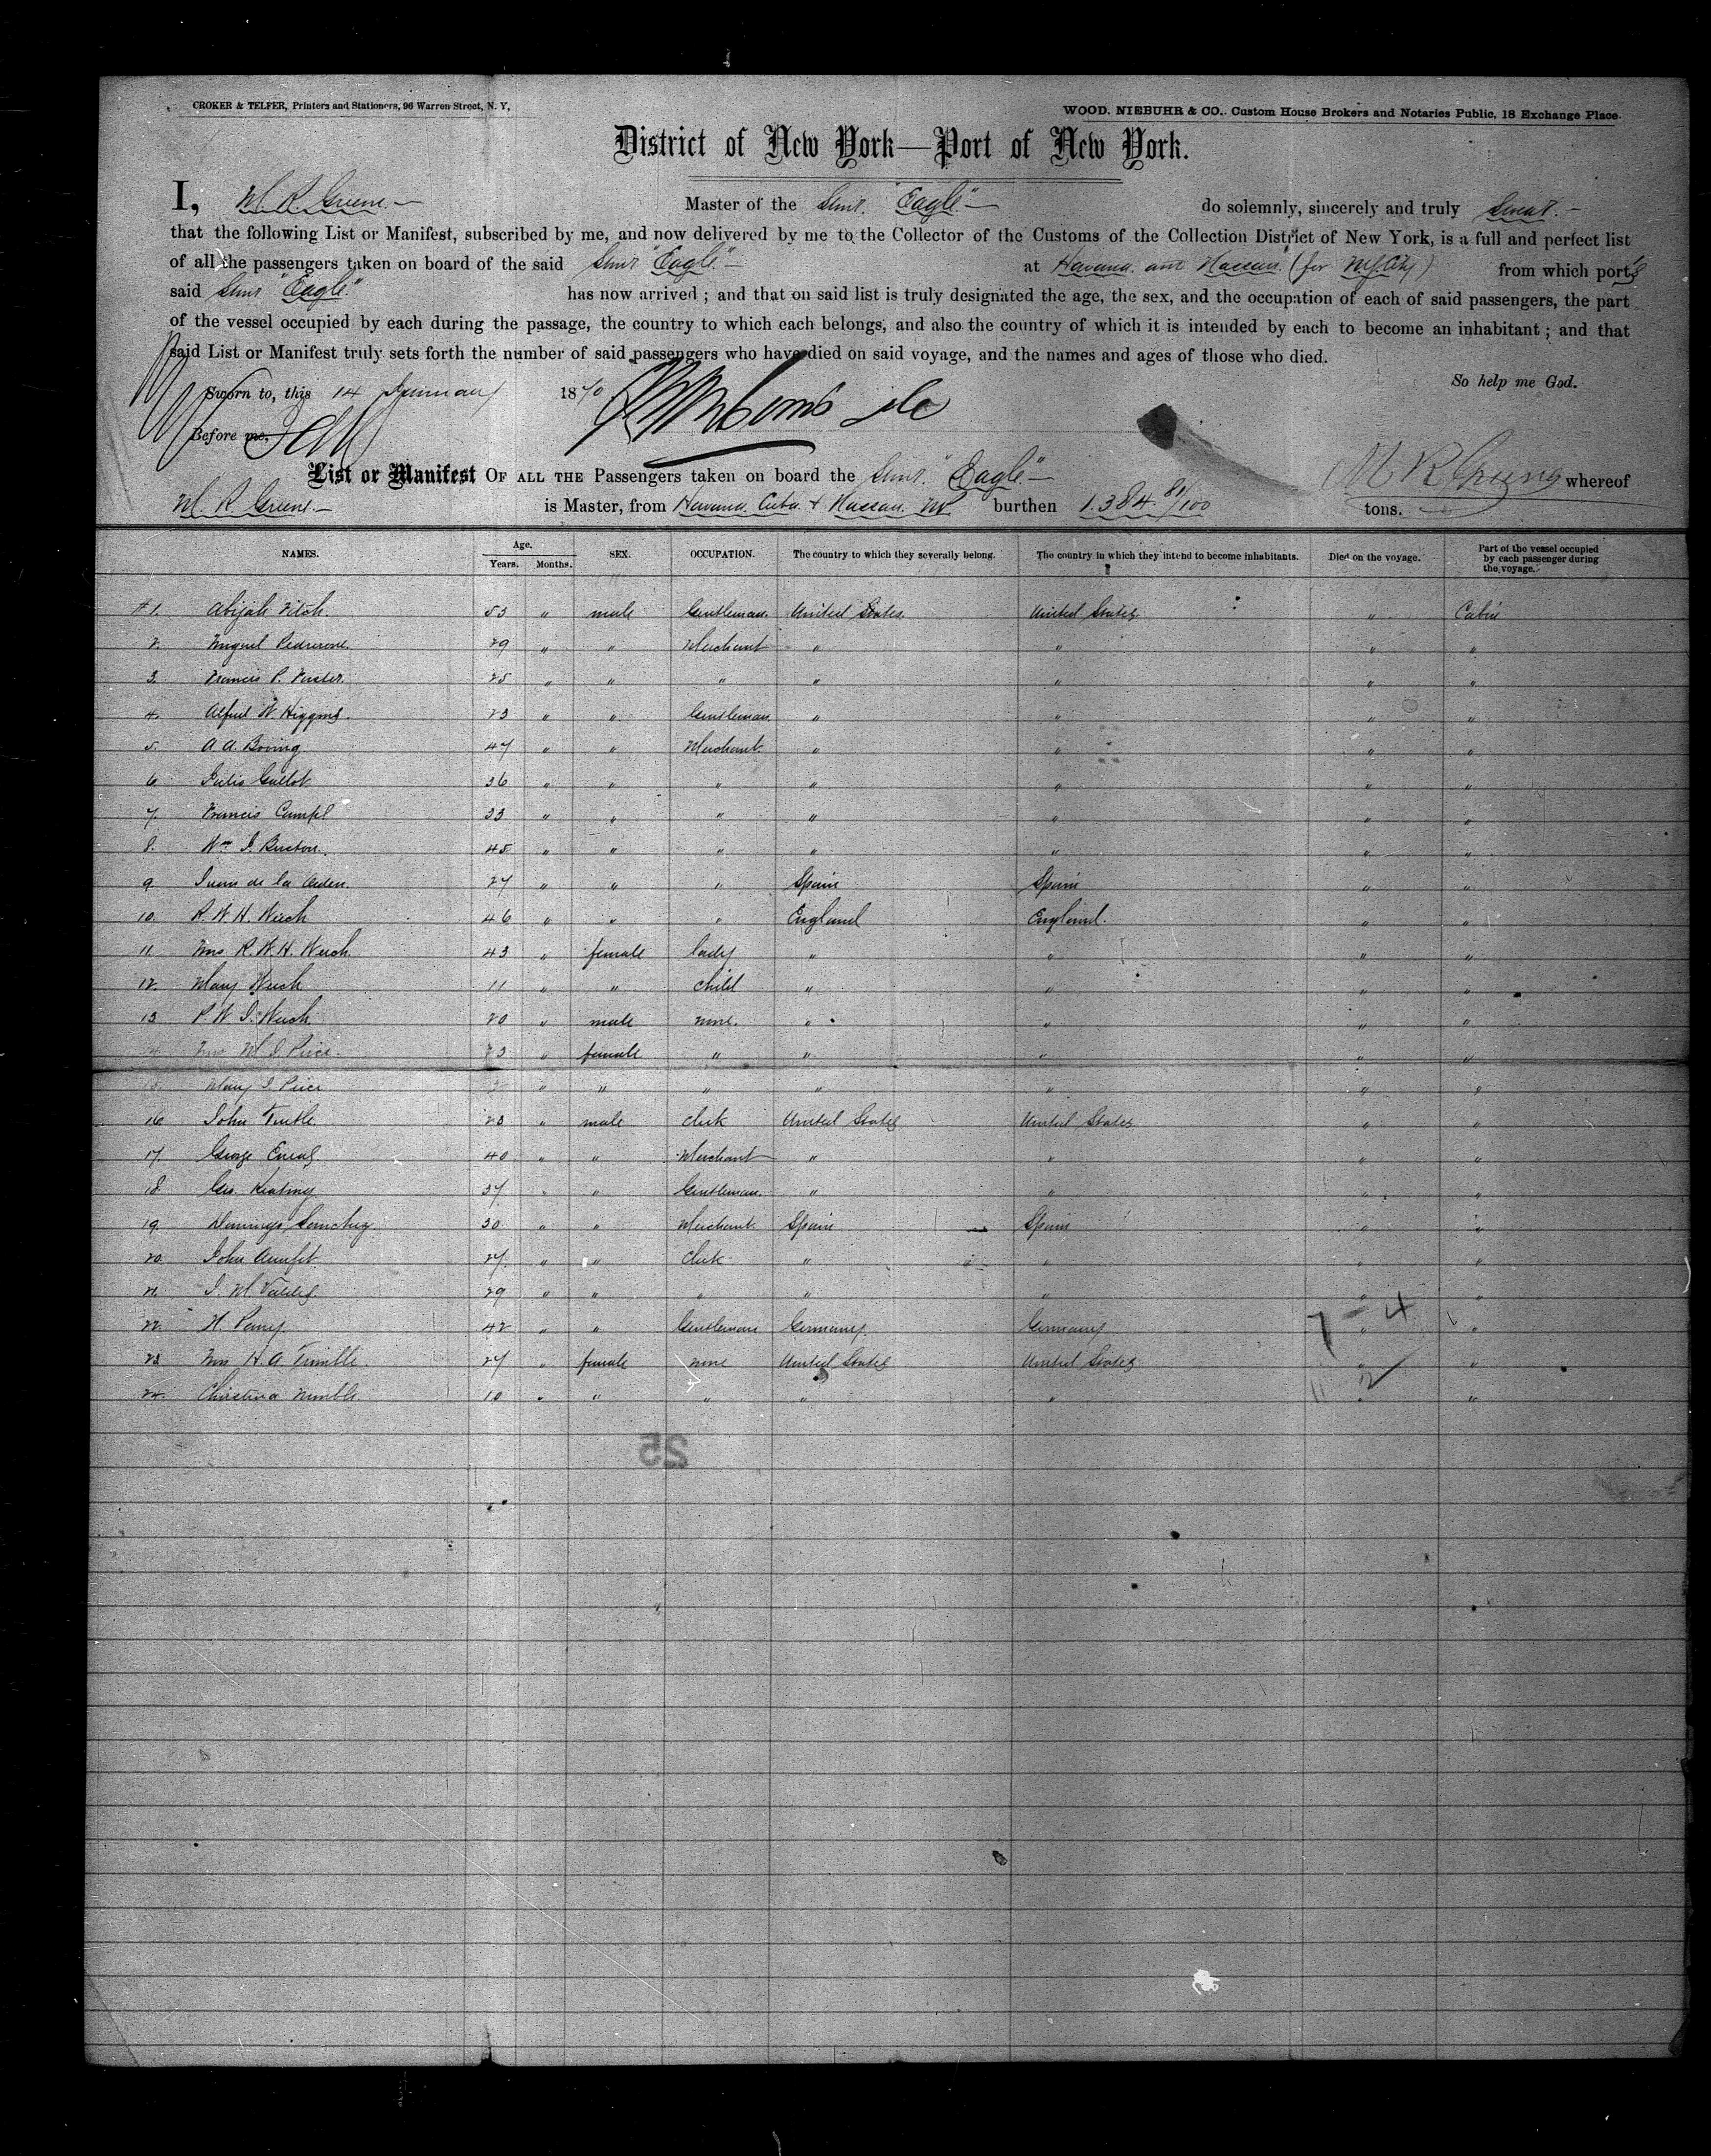 CROKER & TELFER, Printers and Stationers, 96 Warren Street, N. Y,
WOOD, NIEBUHR & CO.. Custom House Brokers and Notaries Public, 18 Exchange Place.
District of New York—Port of New York.
I, M. R. Greene.— Master of the Stmr. "Eagle"— do solemnly, sincerely and truly Swear.—
that the following List or Manifest, subscribed by me, and now delivered by me to the Collector of the Customs of the Collection District of New York, is a full and perfect list
of all the passengers taken on board of the said Stmr "Eagle"— at Havana. and Nassau. (for from which port's
said Stmr "Eagle" has now arrived ; and that on said list is truly designated the age, the sex, and the occupation of each of said passengers, the part
of the vessel occupied by each during the passage, the country to which each belongs, and also the country of which it is intended by each to become an inhabitant ; and that
said List or Manifest truly sets forth the number of said passengers who have died on said voyage, and the names and ages of those who died.
So help me God.
Sworn to, this 14 January 1870
Before me,
List or Manifest OF ALL THE Passengers taken on board the Stmr. "Eagle"— M R Greene whereof
M. R. Greene.— is Master, from Havana. Cuba. & Nassau. NP. burthen 1.384. 81/100 tons.
NAMES. Age. Years. Months. SEX. OCCUPATION. The country to which they severally belong. The country in which they intend to become inhabitants. Died on the voyage. Part of the vessel occupied by each passenger during the voyage.
#1. Abijah Fitch. 53 " male Gentleman. United States. United States " Cabin
2. Miguel 29 " " Merchant " " " "
3. Francis P. 25 " " " " " " "
4. Alfred W. Higgins. 23 " " Gentleman. " " " "
5. A. A. 47 " " Merchant. " " " "
6. Julio 36 " " " " " " "
7. Francis 33 " " " " " " "
8. Wm J. 45 " " " " " " "
9. Juan de la 27 " " " Spain Spain " "
10. R. W. H. Weech 46 " " " England England. " "
11. Mrs R. W. H. Weech. 43 " female lady " " " "
12. Mary Weech 11 " " child " " " "
13 R. W. J. Weech 20 " male none. " " " "
14. Mrs M. J. 23 " female " " " " "
15. Mary J. " " " " " " "
16 John 23 " male clerk United States United States " "
17. George 40 " " Merchant " " " "
18. Geo. Keating 37 " " Gentleman. " " " "
19. Domingo Sanchez 30 " " Merchant Spain Spain " "
20. John 27. " " Clerk " " " "
21. J. M. Valdes. 29 " " " " " " "
22. H. 42 " " Gentleman Germany. Germany " "
23. Mrs H. A. Trimble. 27 " female none United States United States " "
24. Christina 10 " " " " " " "
7 - 4
25